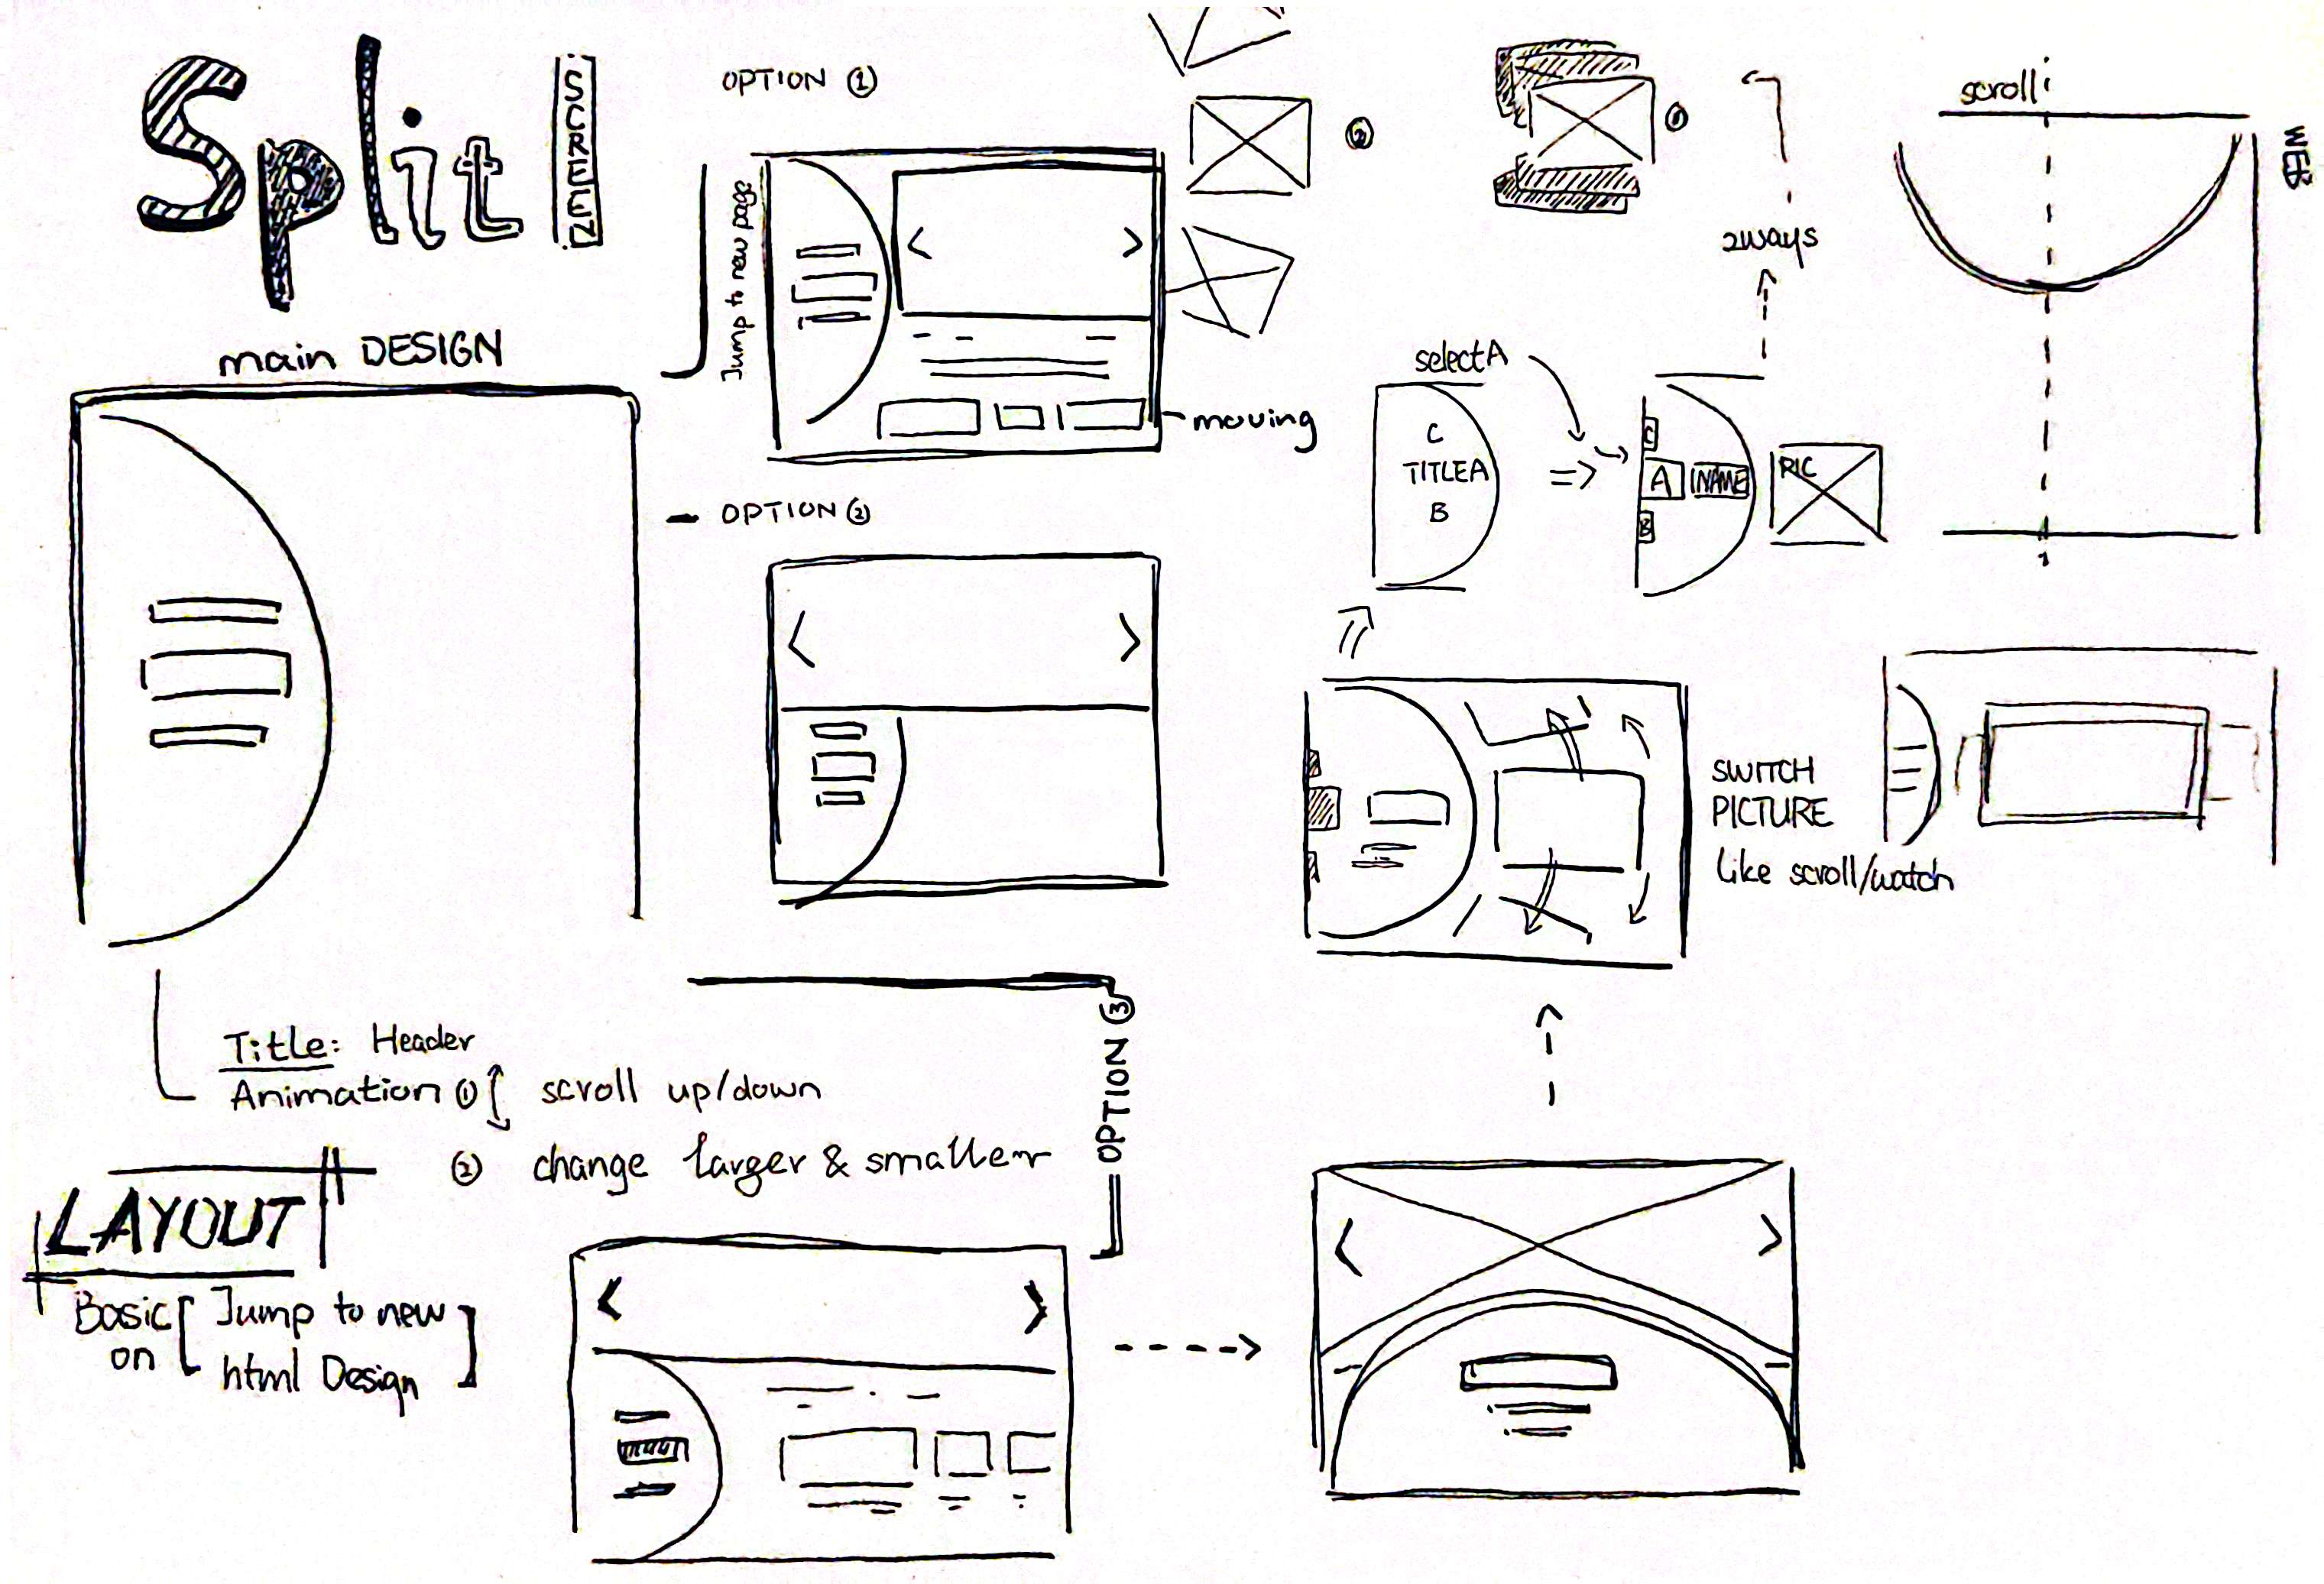 Split
SCREEN
main DESIGN
OPTION ①
Jump to new page
moving
OPTION ②
Title: Header
Animation ① scroll up/down
② change larger & smaller
LAYOUT
Basic on [Jump to new
html Design]
OPTION ③
②
①
2ways
scroll
WEB
select A
C
TITLE A
B
=>
C
A NAME
B
PIC
SWITCH
PICTURE
Like scroll/watch